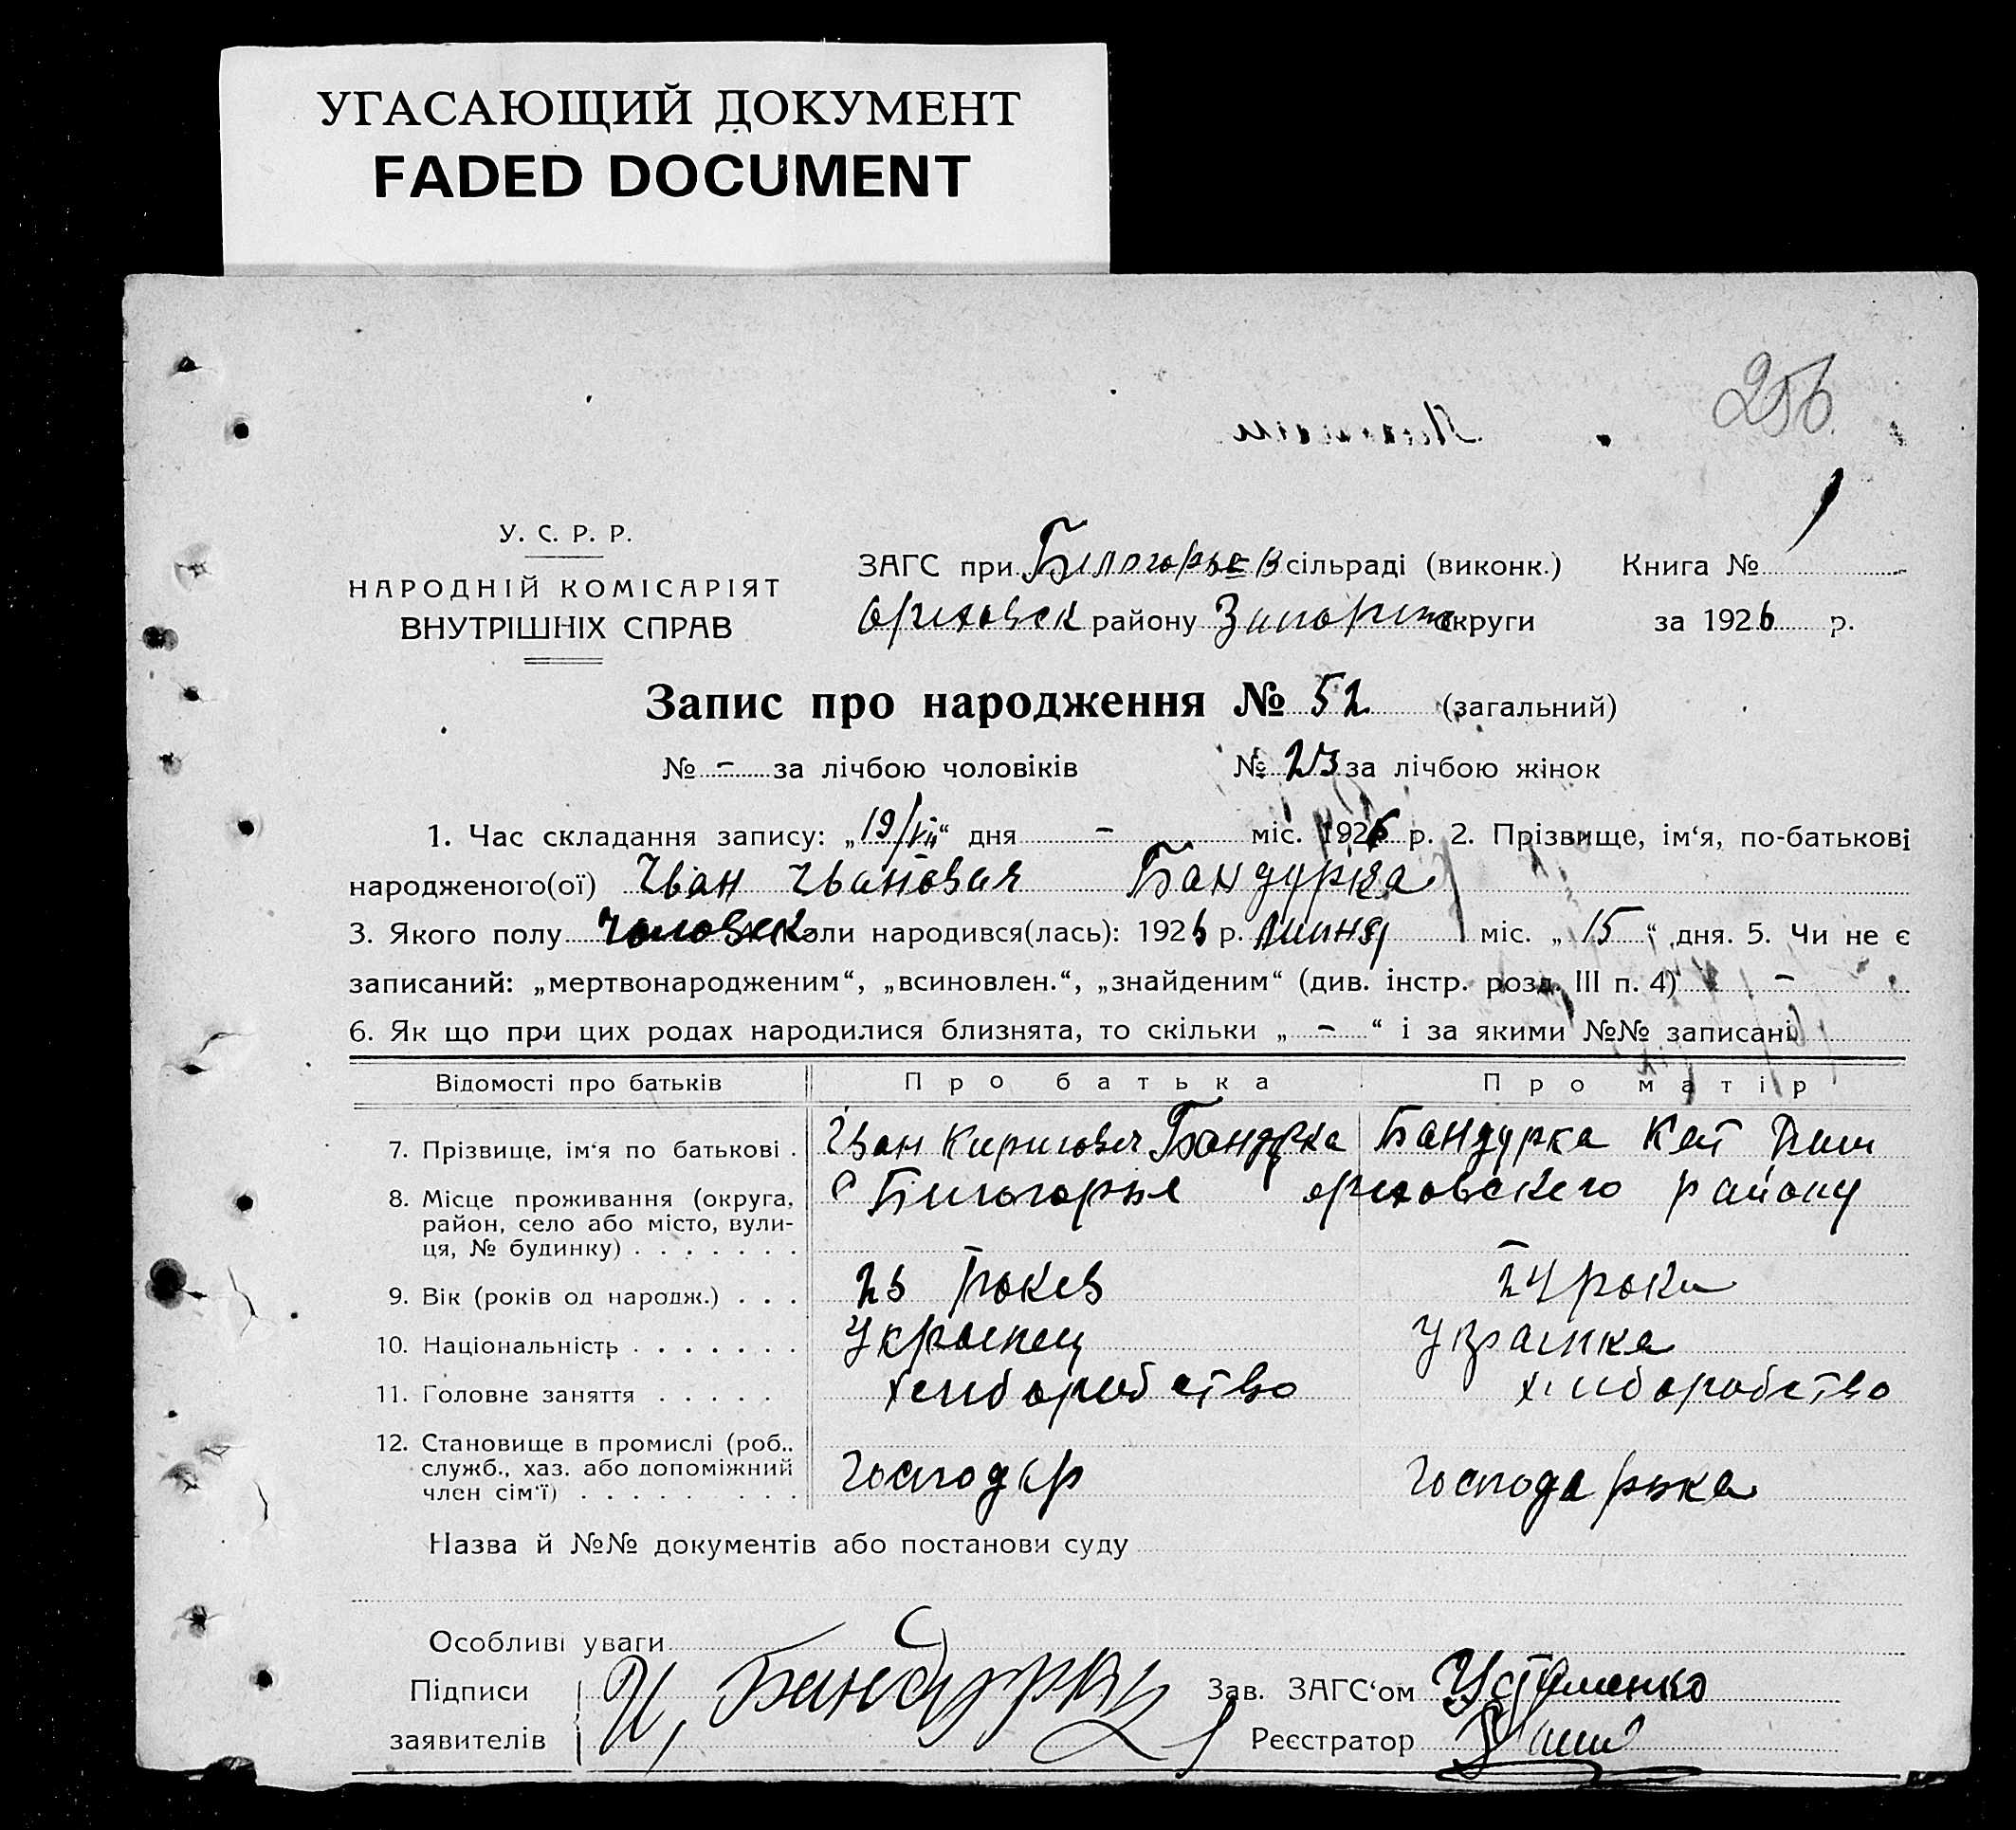 УГАСАЮЩИЙ ДОКУМЕНТ
FADED DOCUMENT
256
У. С. Р. Р.
НАРОДНІЙ КОМІСАРІЯТ
ВНУТРІШНІХ СПРАВ
ЗАГС при Білогорьев сільраді (виконк.) Книга № 1
Ореховск району Запориж округи за 1926 р.
Запис про народження № 52 (загальний)
№ - за лічбою чоловіків № 23 за лічбою жінок
1. Час складання запису: „19/VII“ дня - міс. 1926 р. 2. Прізвище, ім‘я, по-батькові
народженого(ої) Іван Іванович Бандурка
3. Якого полу человек коли народився(лась): 1926 р. Липня міс. „15“ дня. 5. Чи не є
записаний: „мертвонародженим“, „всиновлен.“, „знайденим“ (див. інстр. розд. III п. 4) -
6. Як що при цих родах народилися близнята, то скільки „ - “ і за якими №№ записані
Відомості про батьків Про батька Про матір
7. Прізвище, ім‘я по батькові . Іван Кирилович Бандурка Бандурка Кат
8. Місце проживання (округа, район, село або місто, вулиця, № будинку) . . . . . . . с Білогорье ореховского району
9. Вік (років од народж.) . . . роков 24 роки
10. Національність . . . . . . . Украинец Украинка
11. Головне заняття . . . . . хлиборобство хлиборобство
12. Становище в промислі (роб., служб., хаз. або допоміжний член сім‘ї) . . . . . . . . . господар господарька
Назва й №№ документів або постанови суду
Особливі уваги
Підписи заявителів И, Бандурка
Зав. ЗАГС‘ом Устименко
Реєстратор